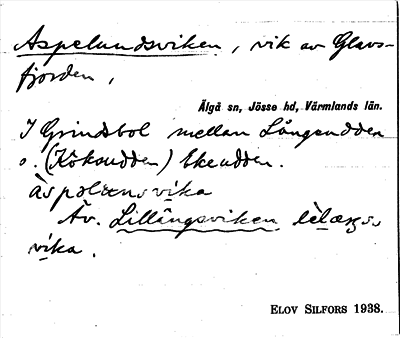 Aspelundsviken, vik av Glavs-
fjorden,
Älgå sn, Jösse hd, Värmlands län.
I Grindsbol mellan Långeudden
o. (Köksudden) Ekeudden.
àspəlɯnsvika
Äv. Lillängsviken
vika.
ELOV SILFORS 1938.